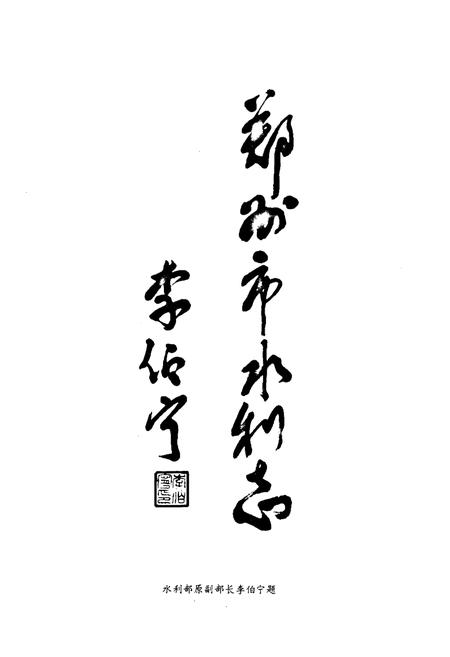 郑州市水利志
李伯宁
李伯宁印
水利部原副部长李伯宁题